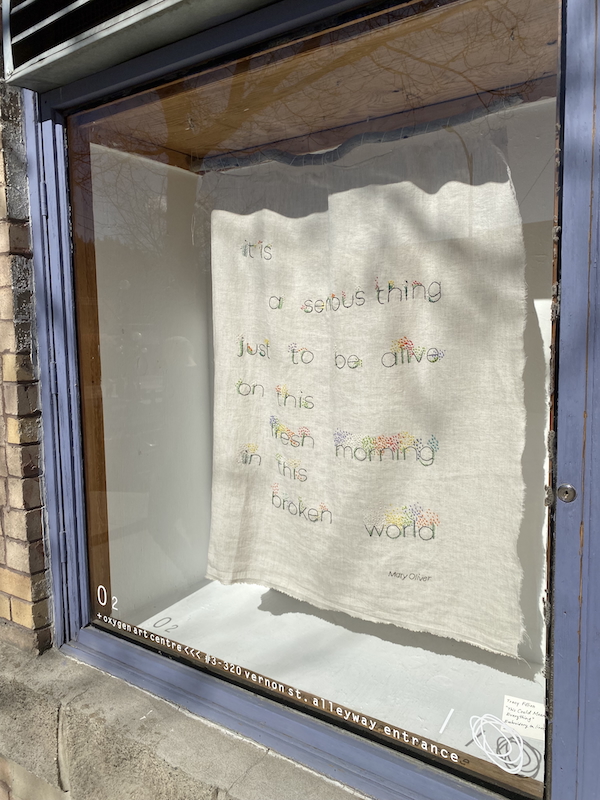 it is
a serious thing
just to be alive
on this
fresh morning
in this
broken world
Mary Oliver
O2
O2
+ oxygen art centre <<< #3-320 vernon st. alleyway entrance
Everything"